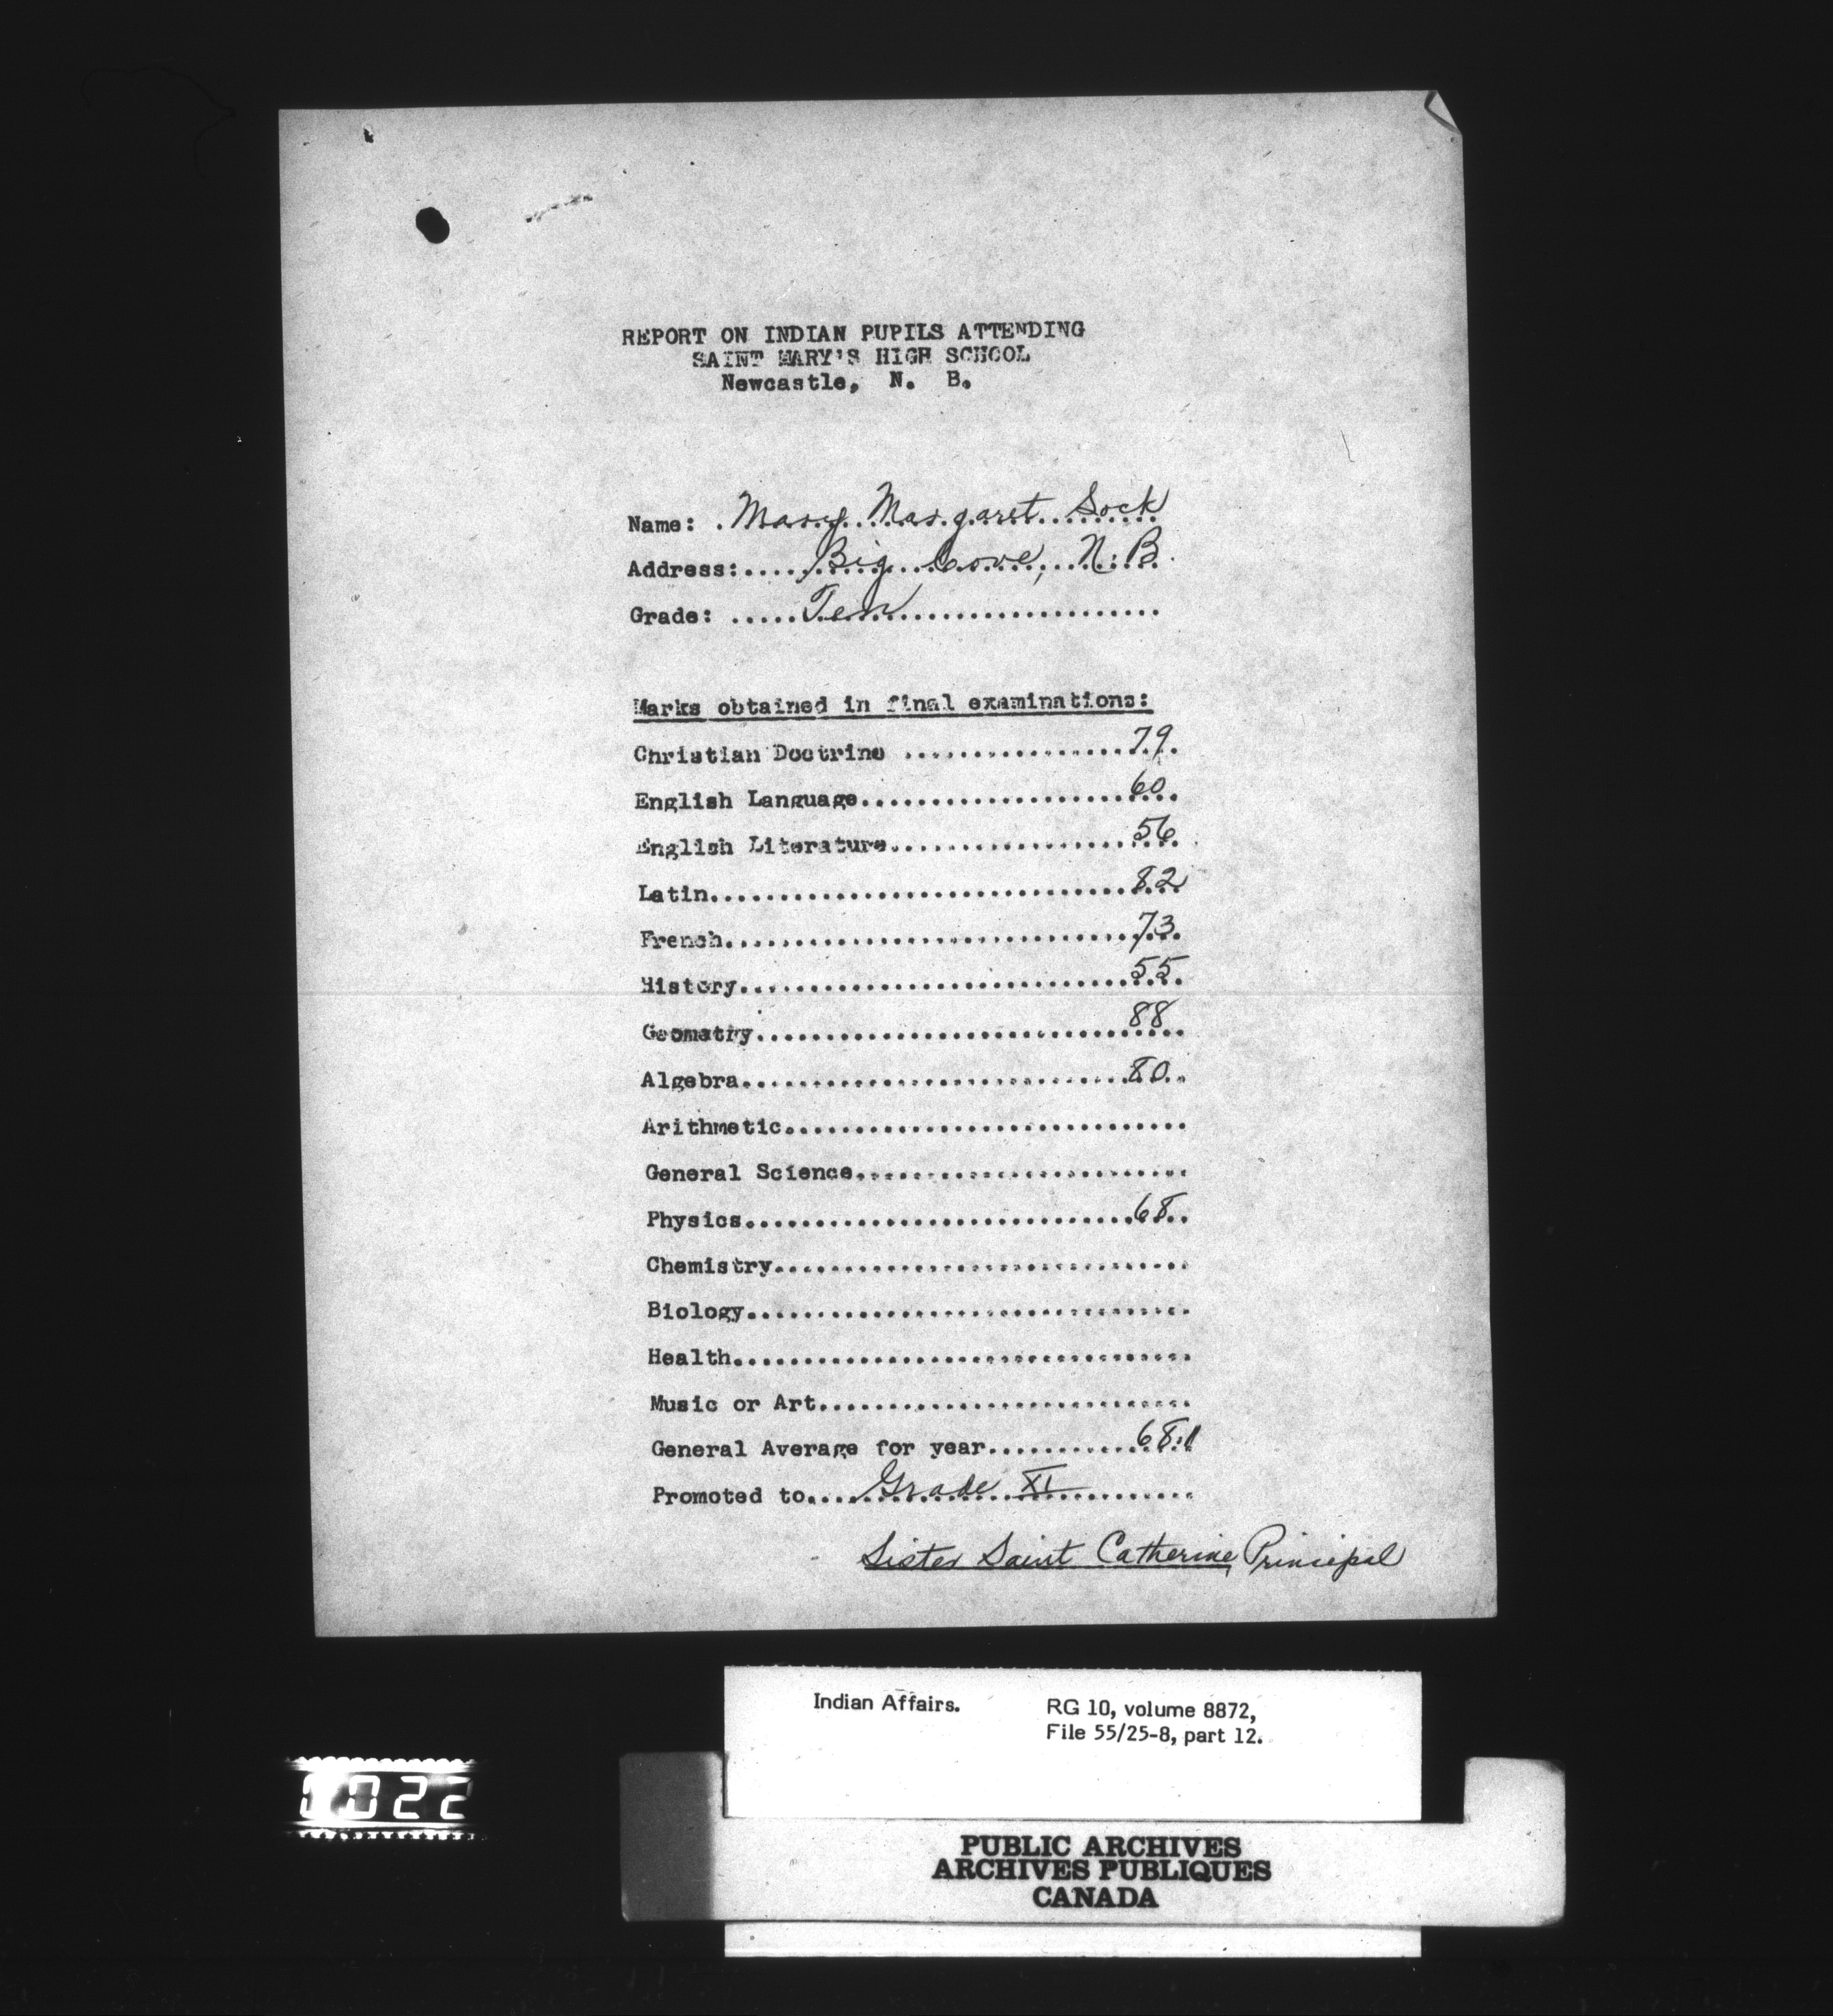 REPORT ON INDIAN PUPILS ATTENDING
SAINT MARY'S HIGH SCHOOL
Newcastle, N. B.
Name: .Mary Margaret Sock
Address:.....Big Cove, N.B.
Grade: .....Ten..................
Marks obtained in final examinations:
Christian Doctrine ................79.
English Language...................60.
English Literature.................56.
Latin..............................82
French.............................73.
History............................55.
Geometry...........................88
Algebra............................80..
Arithmetic.............................
General Science........................
Physics............................68..
Chemistry..............................
Biology................................
Health.................................
Music or Art...........................
General Average for year...........68.1
Promoted to....Grade XI........
Sister Saint Catherine, Principal
Indian Affairs. RG 10, volume 8872,
File 55/25-8, part 12.
0022
PUBLIC ARCHIVES
ARCHIVES PUBLIQUES
CANADA